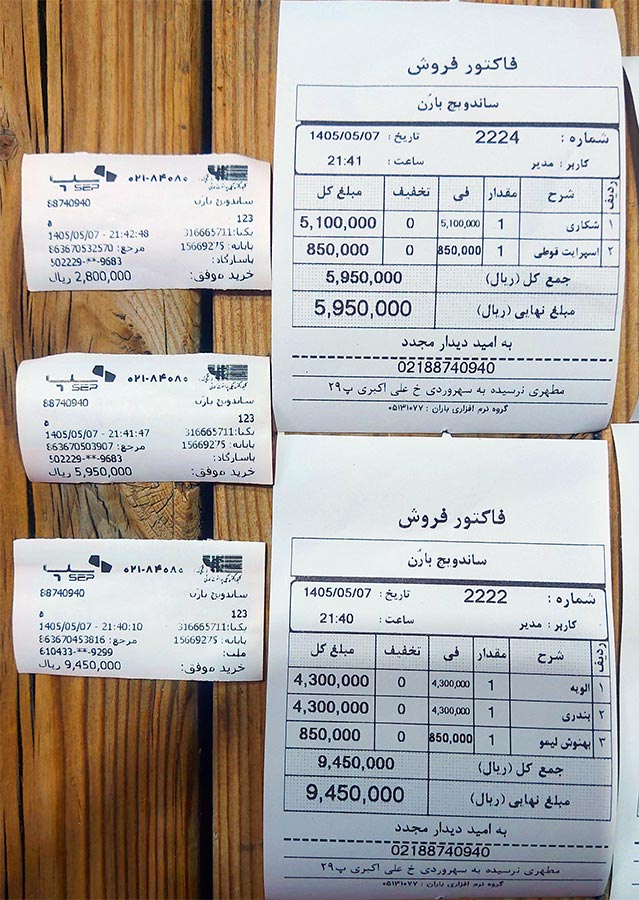 ۰۲۱-۸۴۰۸۰
SEP
88740940
ساندویچ بارُن
123
1405/05/07 - 21:42:48
یکتا: 316665711
پایانه: 15669275
مرجع: 863670532570
پاسارگاد:
502229-**-9683
خرید موفق: 2,800,000 ریال
۰۲۱-۸۴۰۸۰
SEP
88740940
ساندویچ بارُن
123
1405/05/07 - 21:41:47
یکتا: 316665711
پایانه: 15669275
مرجع: 863670503907
پاسارگاد:
502229-**-9683
خرید موفق: 5,950,000 ریال
۰۲۱-۸۴۰۸۰
SEP
88740940
ساندویچ بارُن
123
1405/05/07 - 21:40:10
یکتا: 316665711
پایانه: 15669275
مرجع: 863670453816
ملت:
610433-**-9299
خرید موفق: 9,450,000 ریال
فاکتور فروش
ساندویچ بارُن
شماره : 2224 تاریخ : 1405/05/07
کاربر : مدیر ساعت : 21:41
ردیف شرح مقدار فی تخفیف مبلغ کل
۱ شکاری 1 5,100,000 0 5,100,000
۲ اسپرایت قوطی 1 850,000 0 850,000
جمع کل (ریال) 5,950,000
مبلغ نهایی (ریال) 5,950,000
به امید دیدار مجدد
02188740940
مطهری نرسیده به سهروردی خ علی اکبری پ ۲۹
گروه نرم افزاری باران : ۰۵۱۳۱۰۷۷
فاکتور فروش
ساندویچ بارُن
شماره : 2222 تاریخ : 1405/05/07
کاربر : مدیر ساعت : 21:40
ردیف شرح مقدار فی تخفیف مبلغ کل
۱ الویه 1 4,300,000 0 4,300,000
۲ بندری 1 4,300,000 0 4,300,000
۳ بهنوش لیمو 1 850,000 0 850,000
جمع کل (ریال) 9,450,000
مبلغ نهایی (ریال) 9,450,000
به امید دیدار مجدد
02188740940
مطهری نرسیده به سهروردی خ علی اکبری پ ۲۹
گروه نرم افزاری باران : ۰۵۱۳۱۰۷۷